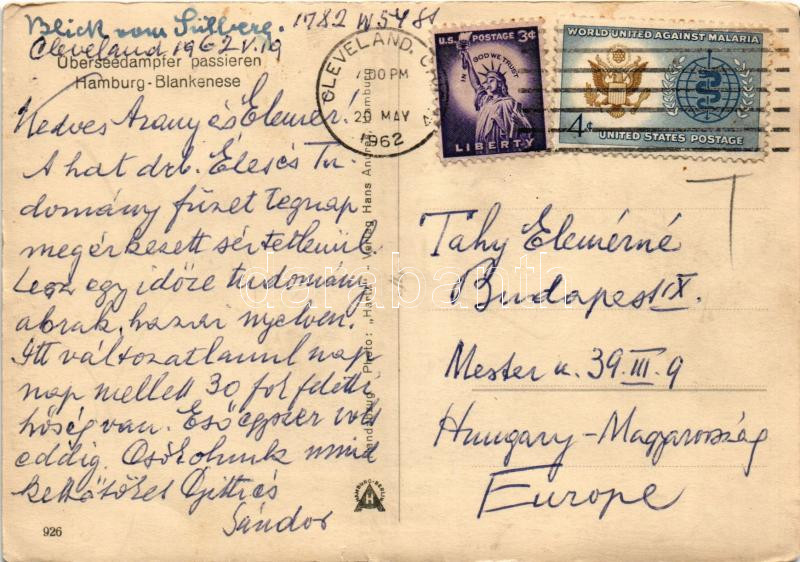 Blick vom Süllberg.
1782 W 54 St
Cleveland 1962 V. 19
Überseedampfer passieren
Hamburg-Blankenese
Kedves Arany és Elemér!
A hat drb. Élet és Tu-
domány füzet tegnap
megérkezett sértetlenül
Lesz egy időre tudomány
abrak, hazai nyelven.
Itt változatlanul nap
nap mellett 30 fok feletti
hőség van. Eső egyszer volt
eddig. Csókolunk mind
kettőtöket Gitti és
Sándor
926
CLEVELAND, O
PM
20 MAY
1962
U.S. POSTAGE 3¢
IN GOD WE TRUST
LIBERTY
WORLD UNITED AGAINST MALARIA
4¢
UNITED STATES POSTAGE
T
Tahy Elemérné
Budapest IX.
Mester u. 39. III. 9
Hungary-Magyarország
Europe
Photo: „Hartz" - Verlag Hans Andres, Hamburg
HAMBURG-BERLIN
H
A
darabanth